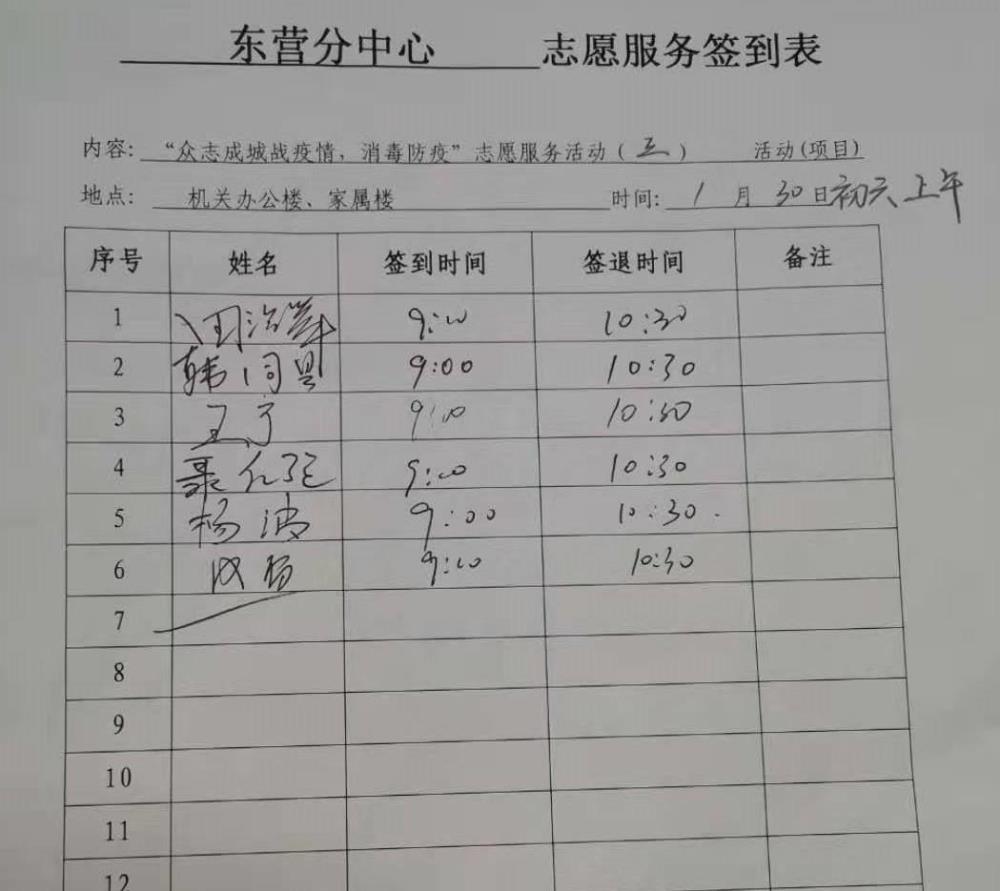 东营分中心 志愿服务签到表
内容: “众志成城战疫情,消毒防疫”志愿服务活动(三) 活动(项目)
地点: 机关办公楼、家属楼 时间: 1月30日初六上午
序号 姓名 签到时间 签退时间 备注
1 9:00 10:30
2 韩 9:00 10:30
3 王 9:00 10:30
4 聂 9:00 10:30
5 杨波 9:00 10:30.
6 9:00 10:30
7
8
9
10
11
12